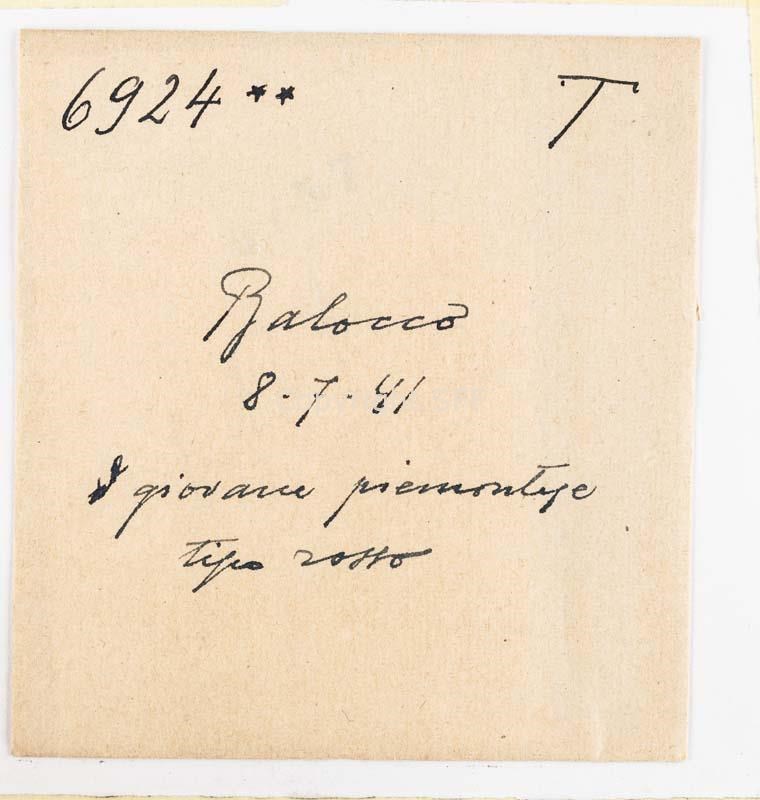 6924** T
Balocco
8.7.41
giovane piemontese
tipo rosso